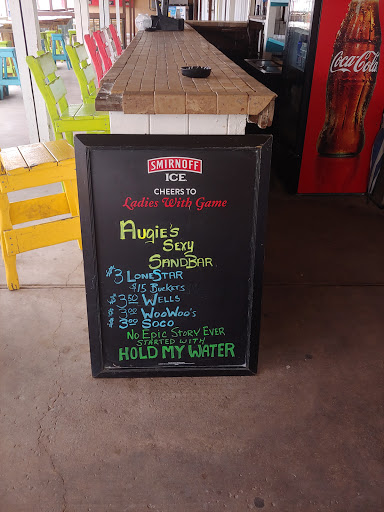 SMIRNOFF
ICE
CHEERS TO
Ladies With Game
AUGIE'S
SEXY
SANDBAR
$3 LONESTAR
$15 BUCKETS
$3.50 WELLS
$3.00 WOOWOO'S
$3.00 SOCO
NO EPIC STORY EVER
STARTED WITH
HOLD MY WATER
Coca-Cola